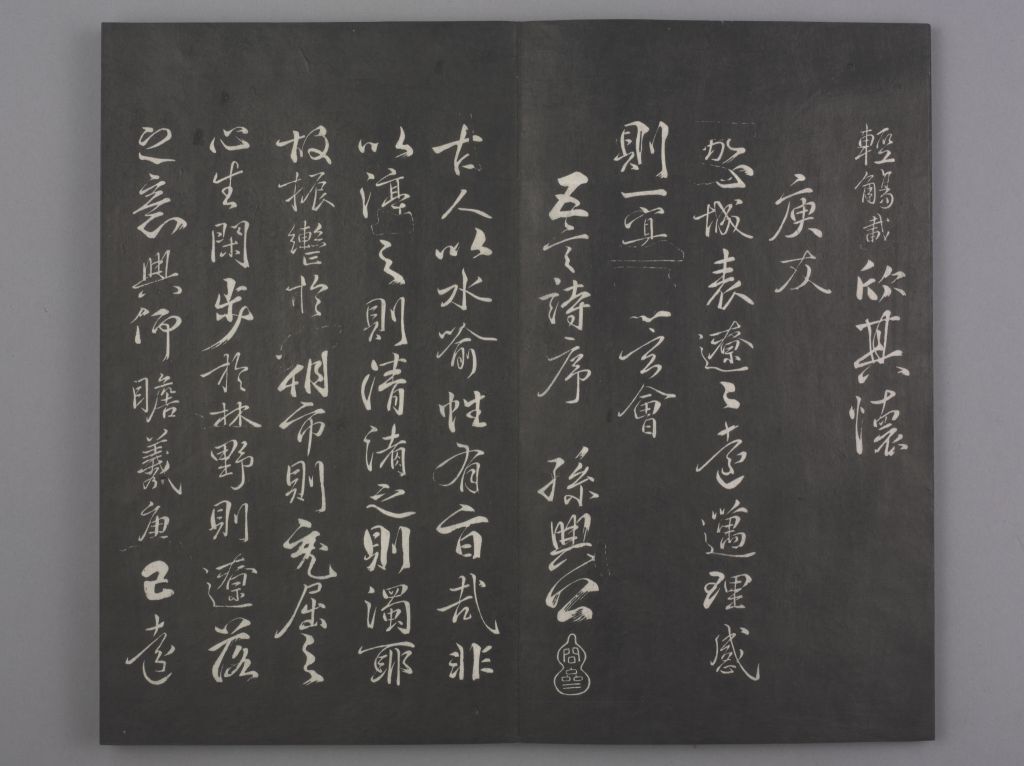 輕觴載欣其懷
庾友
域表遼〻遠邁理感
則一冥玄會
五言詩序 孫興公
古人以水喻性有旨哉非
以渟之則清淆之則濁耶
故振轡於朝市則充屈之
心生閑步於林野則遼落
之意興仰瞻羲唐已遠